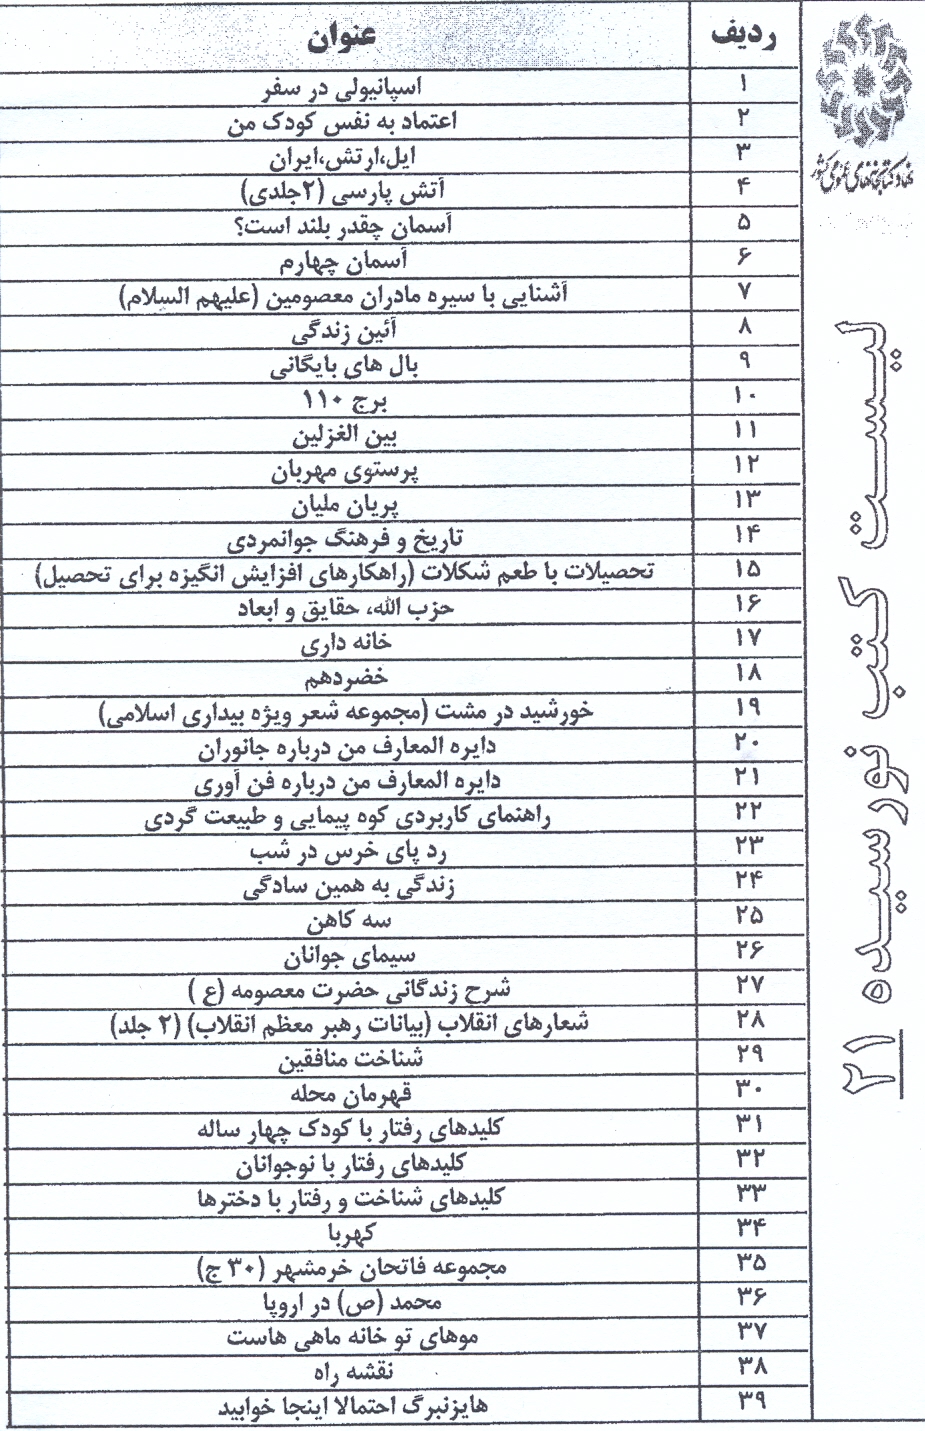 نهاد کتابخانه‌های عمومی کشور
لیست کتب نورسیده ۲۱
ردیف عنوان
۱ اسپانیولی در سفر
۲ اعتماد به نفس کودک من
۳ ایل،ارتش،ایران
۴ آتش پارسی (۲جلدی)
۵ آسمان چقدر بلند است؟
۶ آسمان چهارم
۷ آشنایی با سیره مادران معصومین (علیهم السلام)
۸ آئین زندگی
۹ بال های بایگانی
۱۰ برج ۱۱۰
۱۱ بین الغزلین
۱۲ پرستوی مهربان
۱۳ پریان ملیان
۱۴ تاریخ و فرهنگ جوانمردی
۱۵ تحصیلات با طعم شکلات (راهکارهای افزایش انگیزه برای تحصیل)
۱۶ حزب الله، حقایق و ابعاد
۱۷ خانه داری
۱۸ خضردهم
۱۹ خورشید در مشت (مجموعه شعر ویژه بیداری اسلامی)
۲۰ دایره المعارف من درباره جانوران
۲۱ دایره المعارف من درباره فن آوری
۲۲ راهنمای کاربردی کوه پیمایی و طبیعت گردی
۲۳ رد پای خرس در شب
۲۴ زندگی به همین سادگی
۲۵ سه کاهن
۲۶ سیمای جوانان
۲۷ شرح زندگانی حضرت معصومه (ع )
۲۸ شعارهای انقلاب (بیانات رهبر معظم انقلاب) (۲ جلد)
۲۹ شناخت منافقین
۳۰ قهرمان محله
۳۱ کلیدهای رفتار با کودک چهار ساله
۳۲ کلیدهای رفتار با نوجوانان
۳۳ کلیدهای شناخت و رفتار با دخترها
۳۴ کهربا
۳۵ مجموعه فاتحان خرمشهر (۳۰ ج)
۳۶ محمد (ص) در اروپا
۳۷ موهای تو خانه ماهی هاست
۳۸ نقشه راه
۳۹ هایزنبرگ احتمالا اینجا خوابید